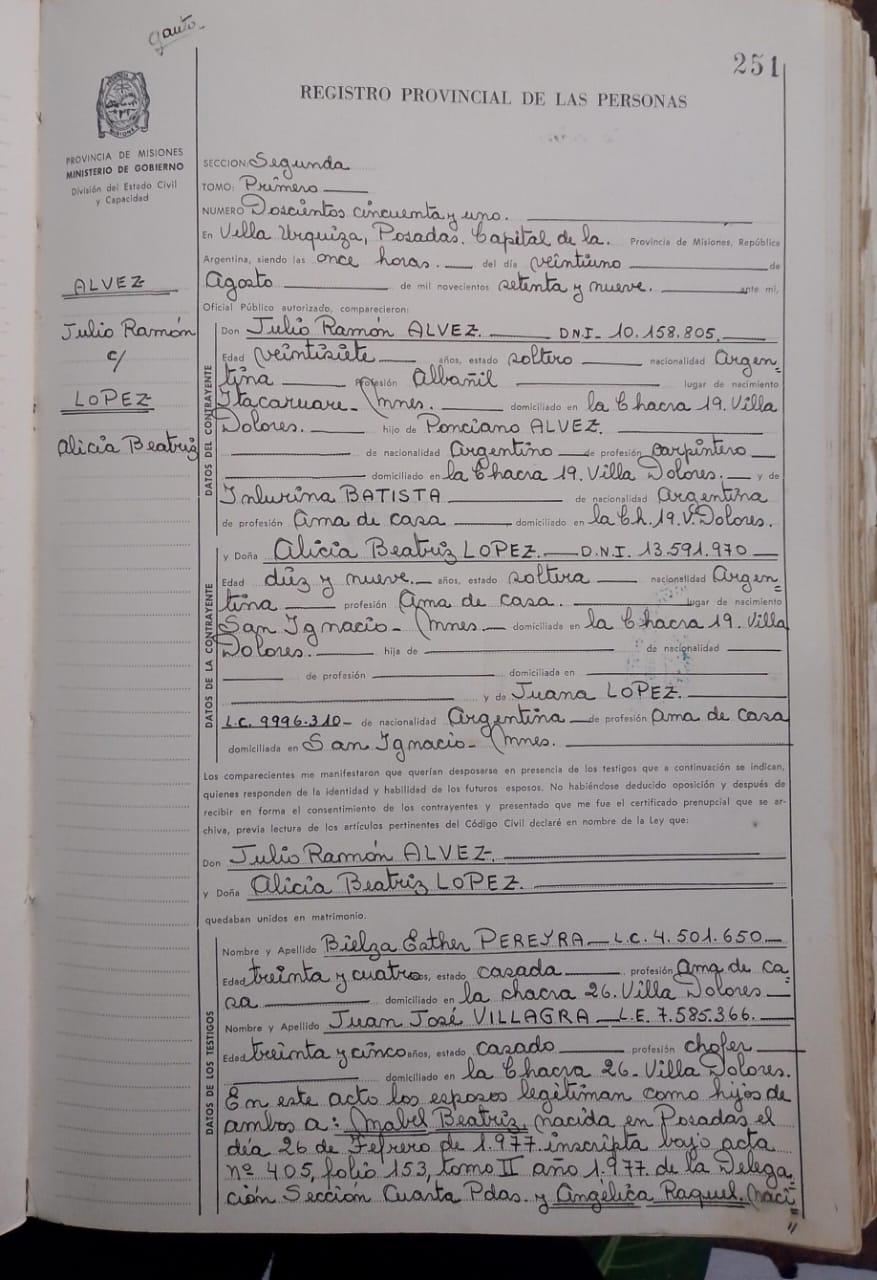 gauto
251
REGISTRO PROVINCIAL DE LAS PERSONAS
MISIONES
PROVINCIA DE MISIONES
MINISTERIO DE GOBIERNO
División del Estado Civil
y Capacidad
ALVEZ
Julio Ramón
c/
LOPEZ
Alicia Beatriz
SECCION: Segunda
TOMO: Primero
NUMERO Doscientos cincuenta y uno.
En Villa Urquiza, Posadas. Capital de la. Provincia de Misiones, República
Argentina, siendo las once horas. del día veintiuno de
Agosto de mil novecientos setenta y nueve. ante mí,
Oficial Público autorizado, comparecieron:
DATOS DEL CONTRAYENTE
Don Julio Ramón ALVEZ. D.N.I- 10.158.805.
Edad veintisiete años, estado soltero nacionalidad Argen=
tina Profesión Albañil lugar de nacimiento
Itacaruare- Mnes. domiciliado en la Chacra 19. Villa
Dolores. hijo de Ponciano ALVEZ.
de nacionalidad Argentino de profesión carpintero
domiciliado en la Chacra 19. Villa Dolores. y de
BATISTA de nacionalidad Argentina
de profesión Ama de casa domiciliado en la Ch. 19. V. Dolores.
DATOS DE LA CONTRAYENTE
y Doña Alicia Beatriz LOPEZ. D.N.I. 13.591.970
Edad diez y nueve. años, estado soltera nacionalidad Argen=
tina profesión Ama de casa. lugar de nacimiento
San Ignacio- Mnes domiciliada en la Chacra 19. Villa
Dolores. hija de de nacionalidad
de profesión domiciliada en
y de Juana LOPEZ.
L.C. 9996.310- de nacionalidad Argentina de profesión Ama de casa
domiciliada en San Ignacio- Mnes.
Los comparecientes me manifestaron que querían desposarse en presencia de los testigos que a continuación se indican,
quienes responden de la identidad y habilidad de los futuros esposos. No habiéndose deducido oposición y después de
recibir en forma el consentimiento de los contrayentes y presentado que me fue el certificado prenupcial que se ar-
chiva, previa lectura de los artículos pertinentes del Código Civil declaré en nombre de la Ley que:
Don Julio Ramón ALVEZ.
y Doña Alicia Beatriz LOPEZ.
quedaban unidos en matrimonio.
DATOS DE LOS TESTIGOS
Nombre y Apellido Bielza Esther PEREYRA L.C. 4.501.650
Edad treinta y cuatro años, estado casada profesión Ama de ca=
sa domiciliado en la chacra 26. Villa Dolores
Nombre y Apellido Juan José VILLAGRA L.E. 7.585.366.
Edad treinta y cinco años, estado casado profesión chofer
domiciliado en la Chacra 26- Villa Dolores.
En este acto los esposos legitiman como hijos de
ambos a: Mabel Beatriz, nacida en Posadas el
día 26 de Febrero de 1.977. inscripta bajo acta
nº 405, folio 153, tomo II año 1.977. de la Delega=
ción Seccion Cuarta Pdas. y Angélica Raquel. Naci